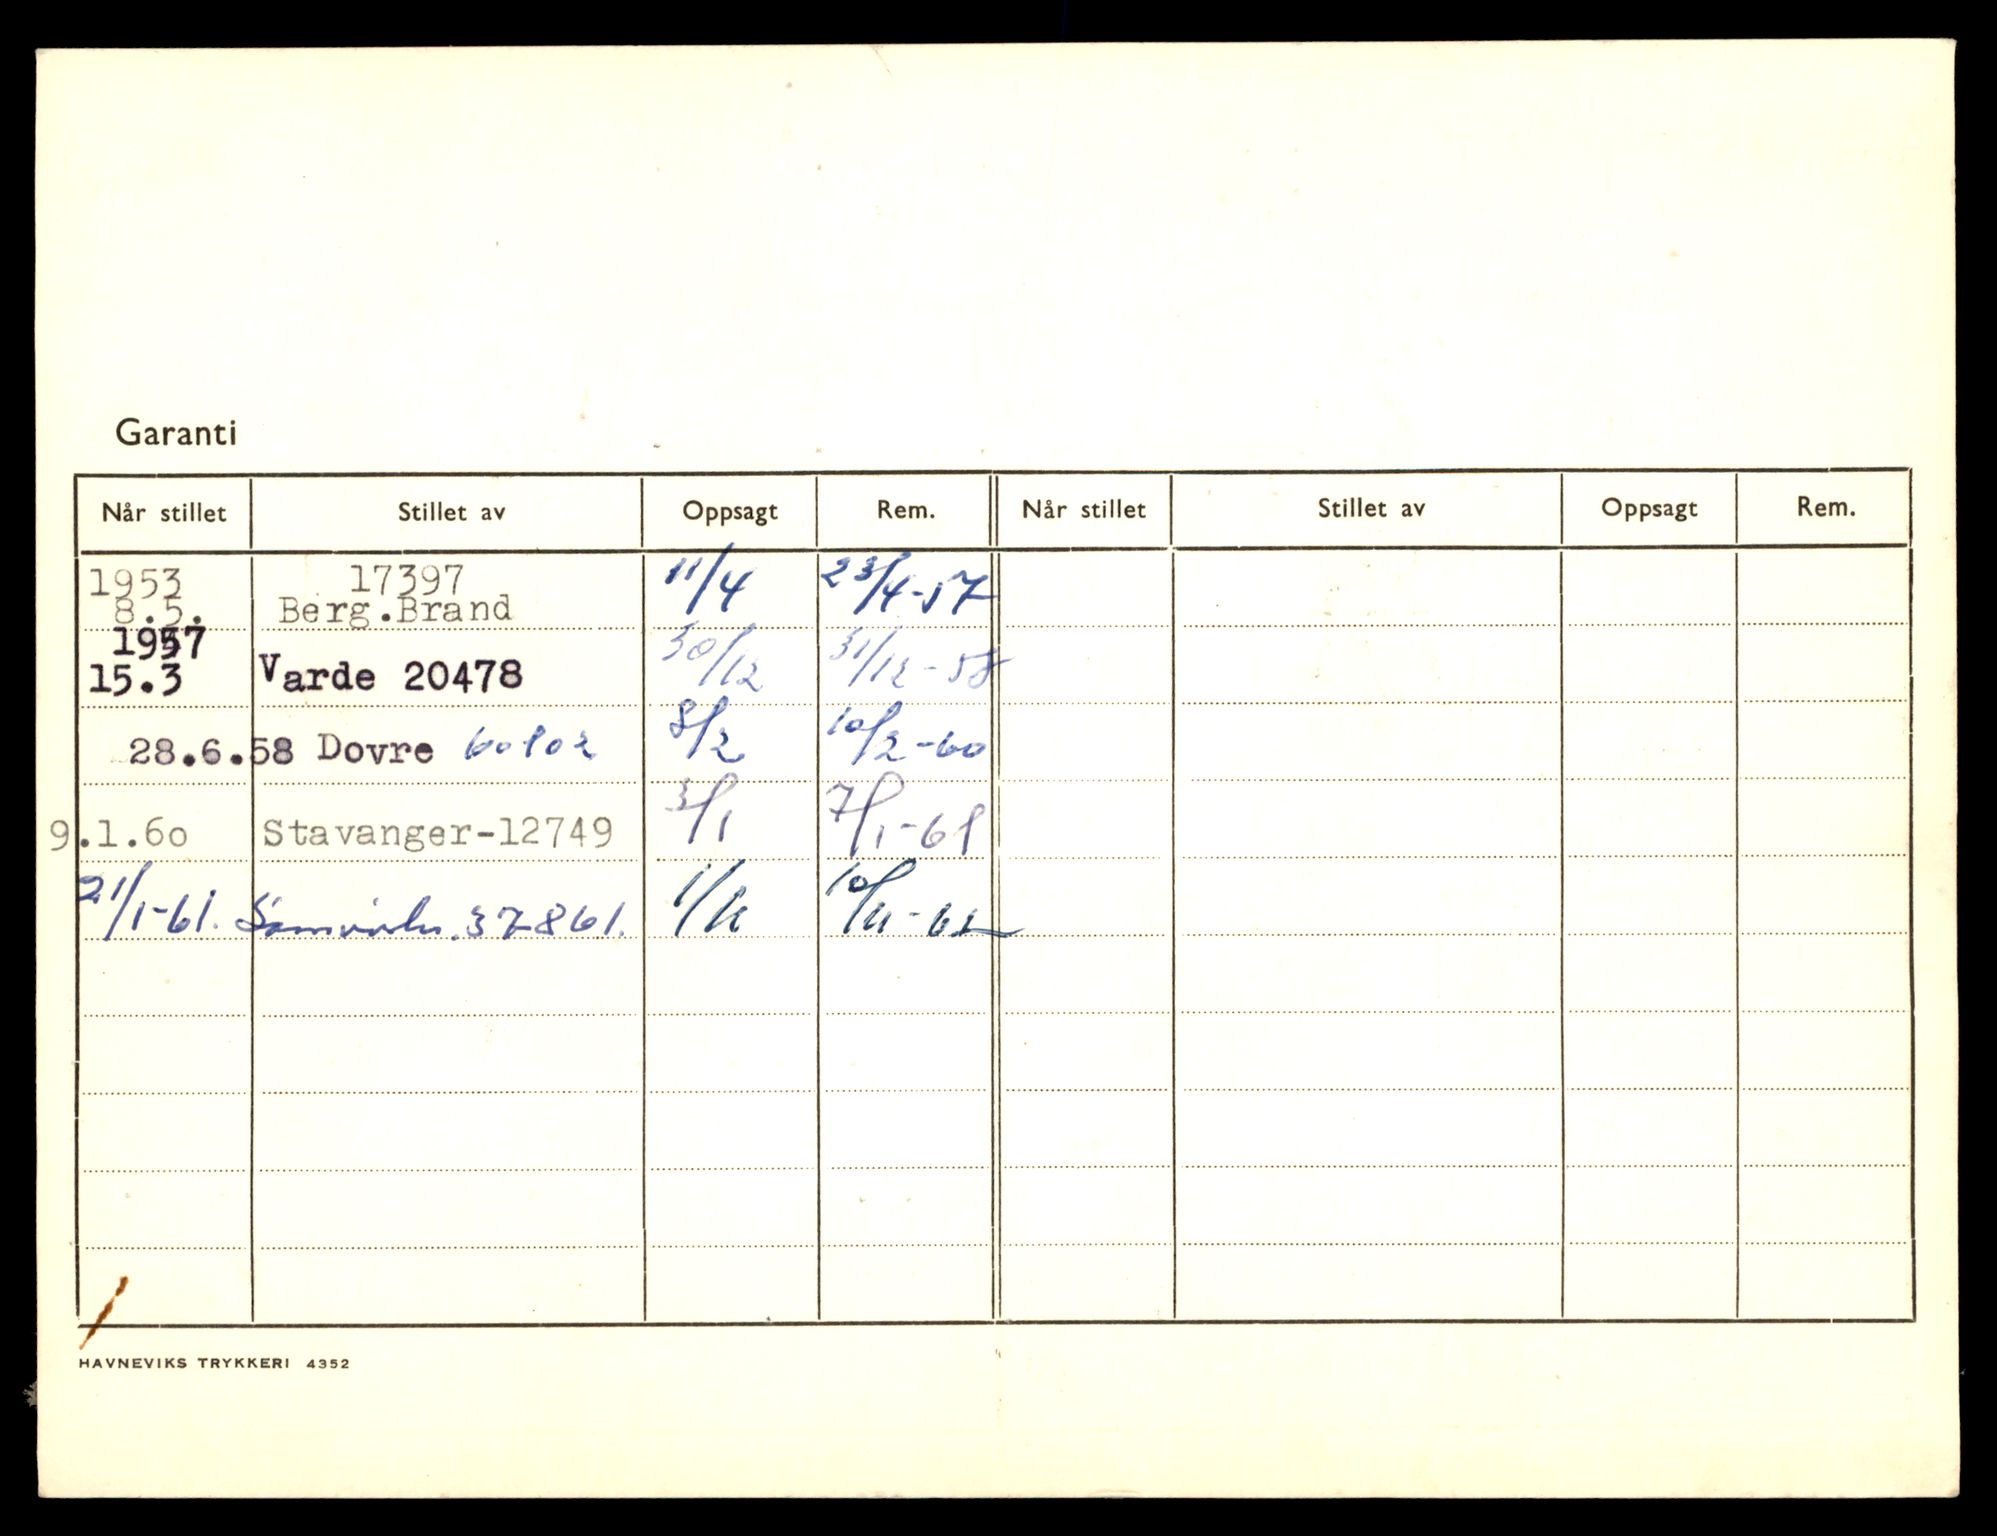 Garanti
Når stillet Stillet av Oppsagt Rem. Når stillet Stillet av Oppsagt Rem.
1953 17397 11/4 23/4-57
8.5. Berg.Brand
1957 30/12 31/12-58
15.3 Varde 20478
28.6.58 Dovre 8/2 10/2-60
9.1.60 Stavanger-12749 3/1 7/1-61
21/1-61. Samvirke.37861. 1/11 10/11-62
HAVNEVIKS TRYKKERI 4352